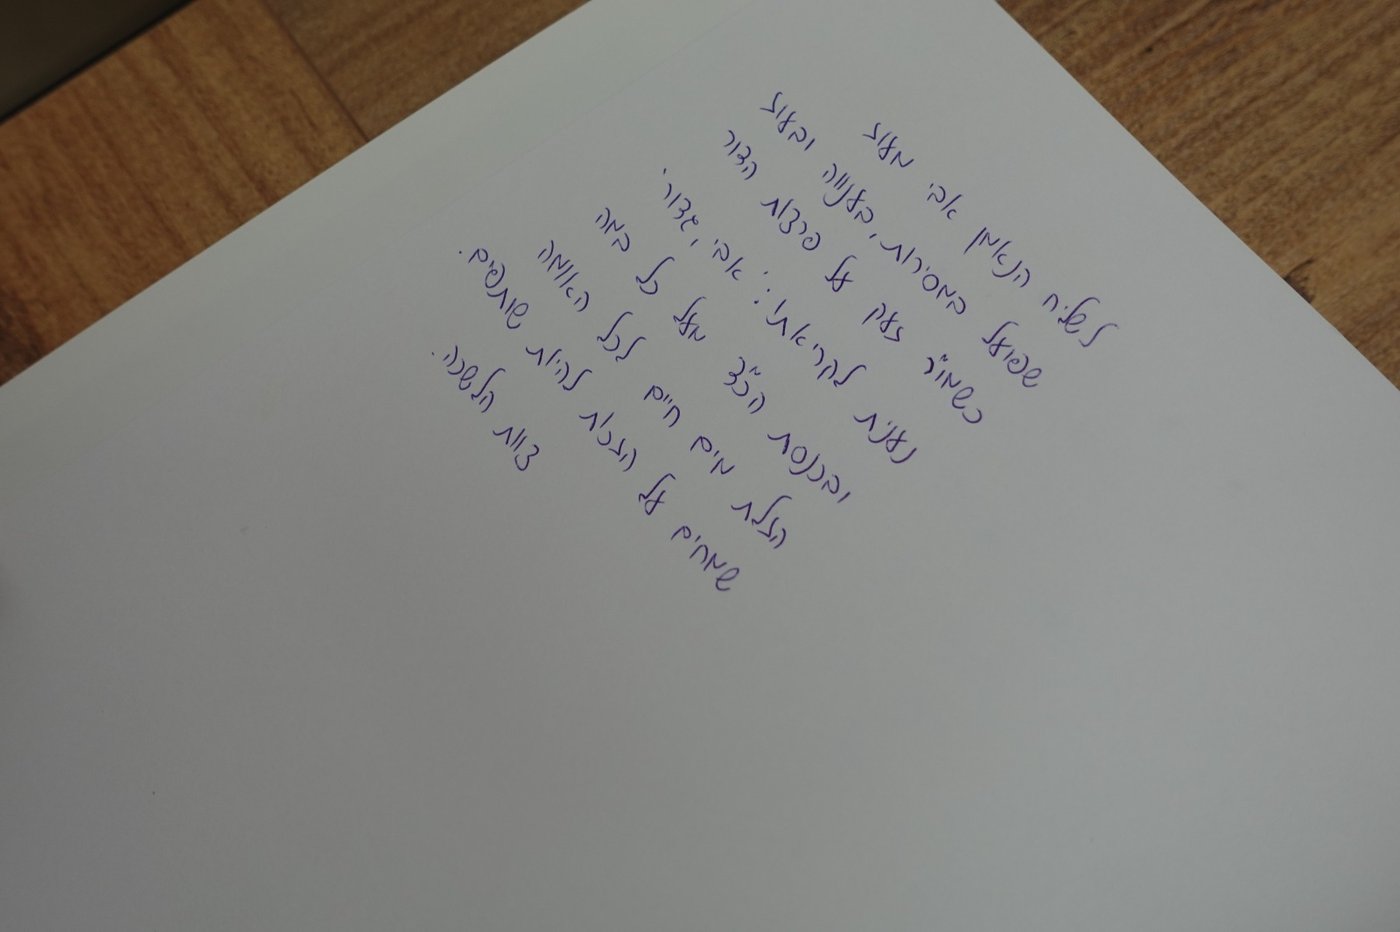 לשליח הנאמן אבי מעוז
שפועל במסירות, בענווה ובעוז
כשמו"ר זעק על פרצות הדור
נענית לקריאתו: אבי, גדור!
ובכנסת הכ"ד מעל כל במה
הזלת מים חיים לכלל האומה
שמחים על הזכות להיות שותפים.
צוות הלשכה.